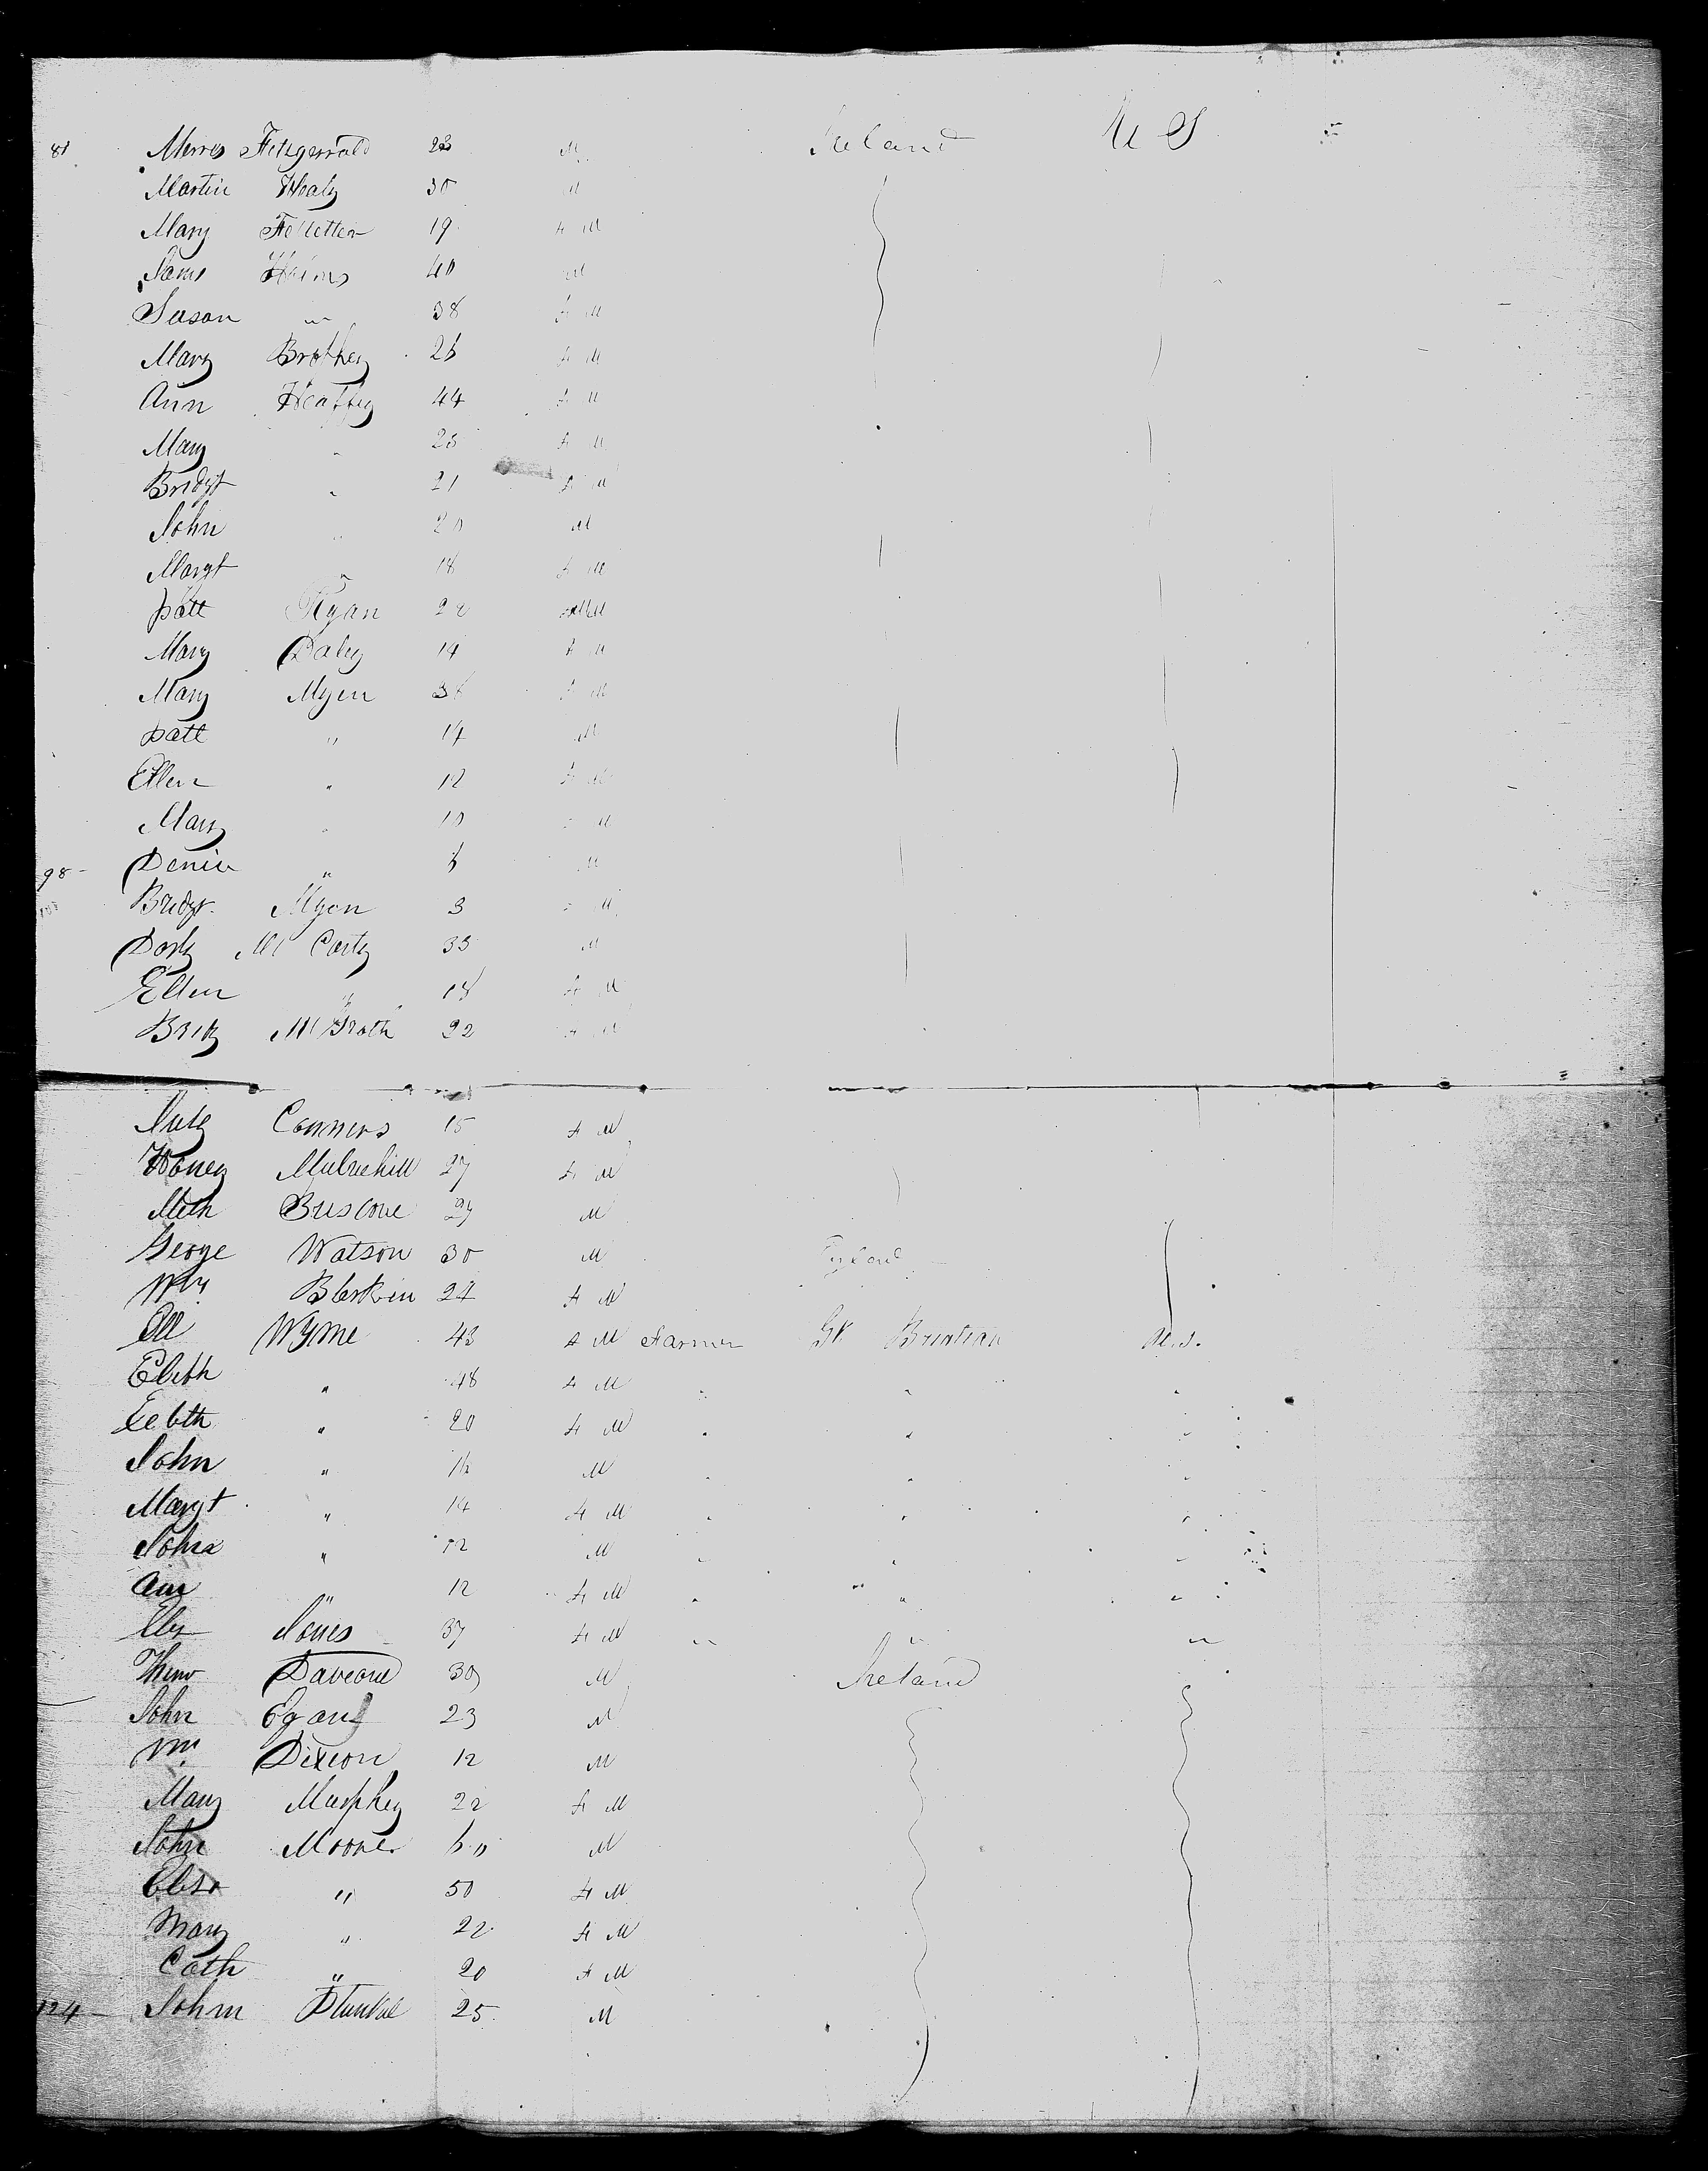 81 Morris Fitzgerrald 22 M Ireland U S
Martin Whaly 30 M
Mary 19 F M
James Haims 40 M
Susan " 38 F M
Mary Brothey 26 F M
Ann Heaffy 44 F M
Mary " 23 F M
Bridgt " 21 F M
John " 20 M
Margt " 18 F M
patt Ryan 22 M
Mary Daley 14 F M
Mary Myen 36 F M
patt " 14 M
Ellen " 12 F M
Mary " 10 F M
98 - Denis " 6 M
Bridgt. Myen 3 F M
Mc Carty 35 M
Ellen " 18 F M
McGrath 22 F M
Judy Connors 15 F M
Honey 27 F M
Mich Briscoue 29 M
George Watson 30 M England
Wm 24 F M
Ell Wynne 43 F M Farmer Gt Briatian U.S.
Elbth " 48 F M " " "
Eebth " 20 F M " " "
John " 16 M " " "
Margt " 14 F M " " "
John " 12 M " " "
Ann " 12 F M " " "
Elz Jones 37 F M " " "
Daveone 30 M Ireland
John Egan 23 M
Wm Dixion 12 M
Mary Murphey 22 F M
John Moore 60 M
Elisa " 50 F M
Mary " 22 F M
Cath " 20 F M
124 - John Plunket 25 M